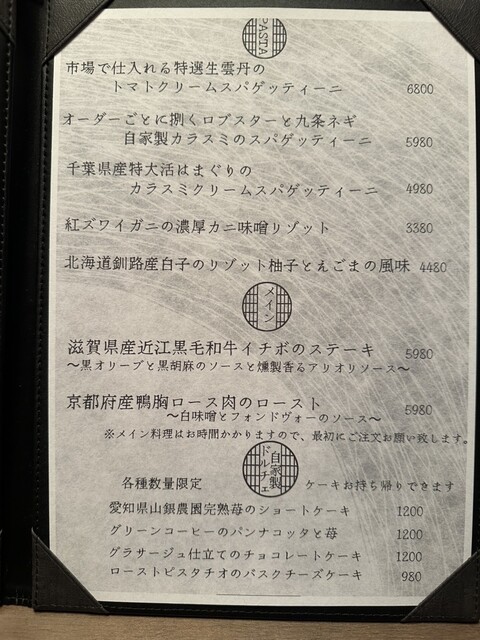 PASTA
市場で仕入れる特選生雲丹の
トマトクリームスパゲッティーニ 6800
オーダーごとに捌くロブスターと九条ネギ
自家製カラスミのスパゲッティーニ 5980
千葉県産特大活はまぐりの
カラスミクリームスパゲッティーニ 4980
紅ズワイガニの濃厚カニ味噌リゾット 3380
北海道釧路産白子のリゾット柚子とえごまの風味 4480
メイン
滋賀県産近江黒毛和牛イチボのステーキ 5980
～黒オリーブと黒胡麻のソースと燻製香るアリオリソース～
京都府産鴨胸ロース肉のロースト 5980
～白味噌とフォンドヴォーのソース～
※メイン料理はお時間かかりますので、最初にご注文お願い致します。
自家製
ドルチェ
各種数量限定 ケーキお持ち帰りできます
愛知県山銀農園完熟苺のショートケーキ 1200
グリーンコーヒーのパンナコッタと苺 1200
グラサージュ仕立てのチョコレートケーキ 1200
ローストピスタチオのバスクチーズケーキ 980